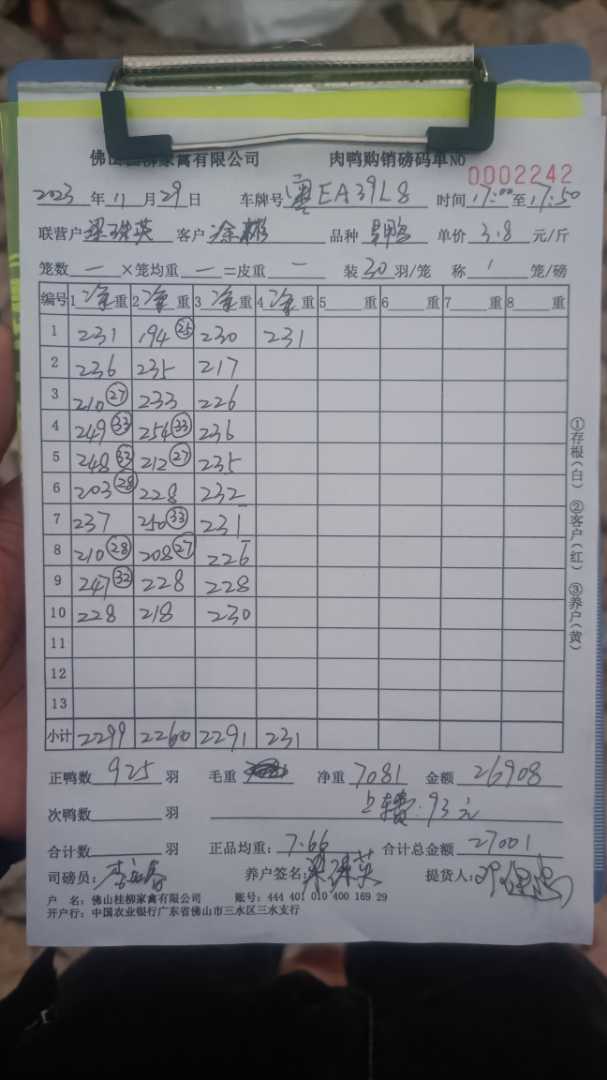 佛山桂柳家禽有限公司 肉鸭购销磅码单NO 0002242
2023 年 11 月 29 日 车牌号 粤EA39L8 时间 17:00 至 17:50
联营户 梁珠英 客户 涂彬 品种 鸭 单价 3.8 元/斤
笼数 一 ×笼均重 一 =皮重 一 装 30 羽/笼 称 1 笼/磅
编号 1 净 重 2 净 重 3 净 重 4 净 重 5 重 6 重 7 重 8 重
1 231 194 (25) 230 231
2 236 235 217
3 210 (27) 233 226
4 249 (33) 254 (33) 236
5 248 (33) 212 (27) 235
6 203 (28) 228 232
7 237 250 (33) 231
8 210 (28) 208 (27) 226
9 247 (32) 228 228
10 228 218 230
11
12
13
小计 2299 2260 2291 231
正鸭数 925 羽 毛重 净重 7081 金额 26908
次鸭数 羽 上车费:93元
合计数 羽 正品均重: 7.66 合计总金额 27001
司磅员: 养户签名: 梁珠英 提货人:
户 名: 佛山桂柳家禽有限公司 账号: 444 401 010 400 169 29
开户行: 中国农业银行广东省佛山市三水区三水支行
①存根(白) ②客户(红) ③养户(黄)